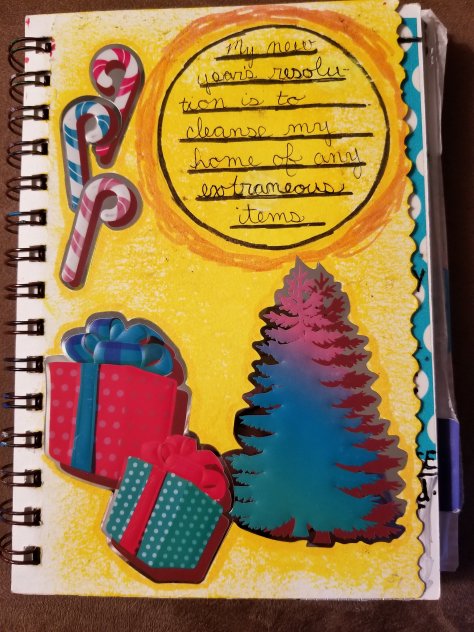 My new
years resolu-
tion is to
cleanse my
home of any
extraneous
items